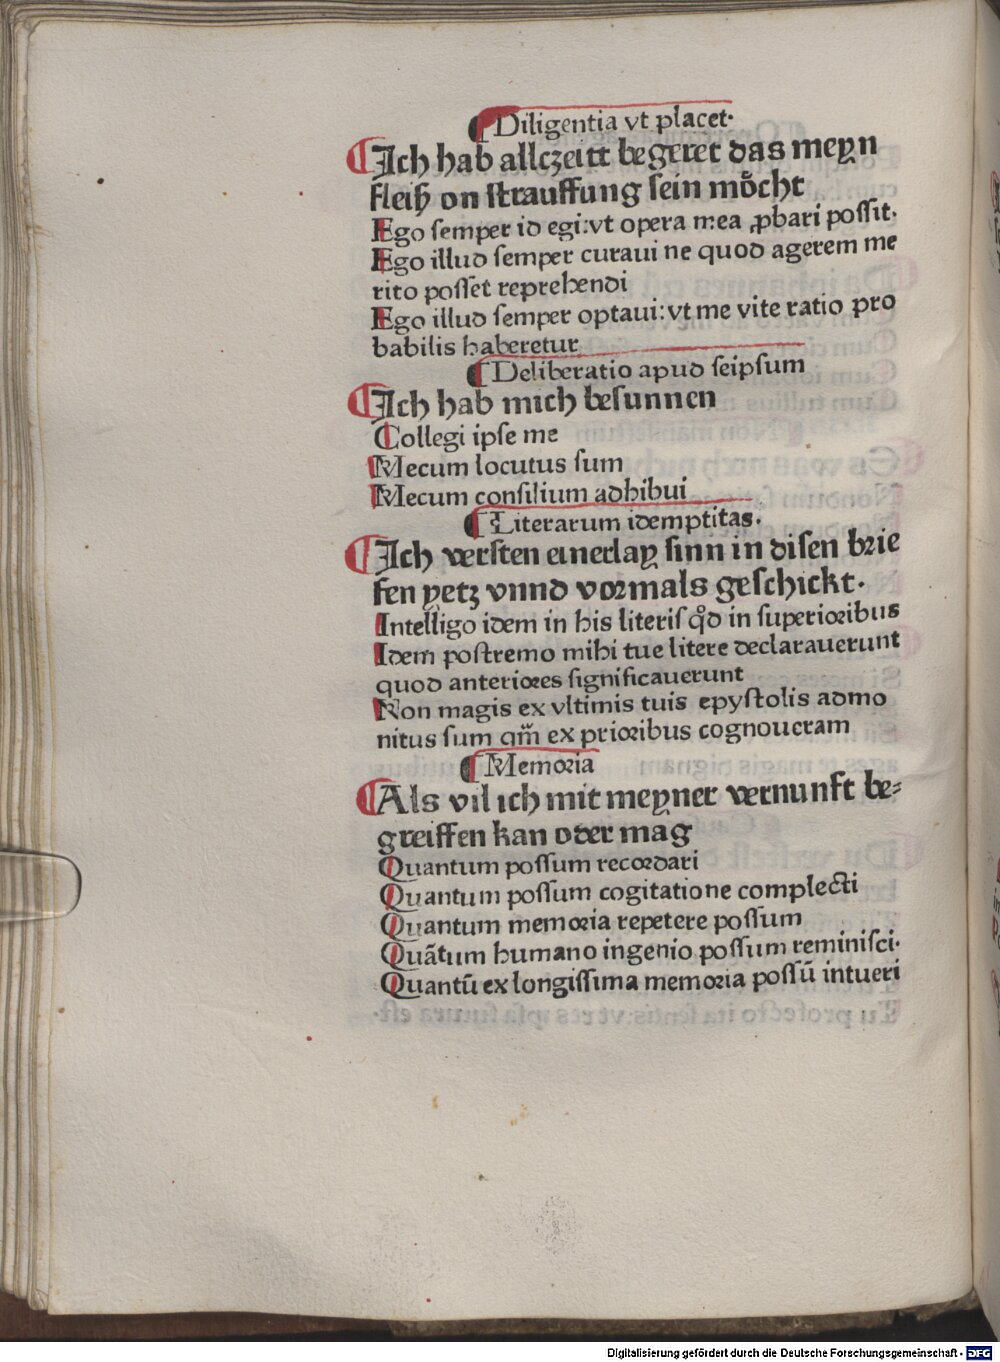 ¶ Diligentia vt placet·
¶ Ich hab allczeitt begeret das meyn
fleiß on strauffung sein moͤcht
Ego semper id egi: vt opera mea ꝓbari possit·
Ego illud semper curaui ne quod agerem me
rito posset reprehendi
Ego illud semper optaui: vt me vite ratio pro
babilis haberetur
¶ Deliberatio apud seipsum
¶ Ich hab mich besunnen
Collegi ipse me
Mecum locutus sum
Mecum consilium adhibui
¶ Literarum idemptitas·
¶ Ich versten einerlay sinn in disen brie
fen yetz vnnd vormals geschickt·
Intelligo idem in his literis qd̛ in superioribus
Idem postremo mihi tue litere declarauerunt
quod anteriores significauerunt
Non magis ex vltimis tuis epystolis admo
nitus sum qm̃ ex prioribus cognoueram
¶ Memoria
¶ Als vil ich mit meyner vernunft be⸗
greiffen kan oder mag
Quantum possum recordari
Quantum possum cogitatione complecti
Quantum memoria repetere possum
Quãtum humano ingenio possum reminisci·
Quantũ ex longissima memoria possũ intueri
Digitalisierung gefördert durch die Deutsche Forschungsgemeinschaft - DFG